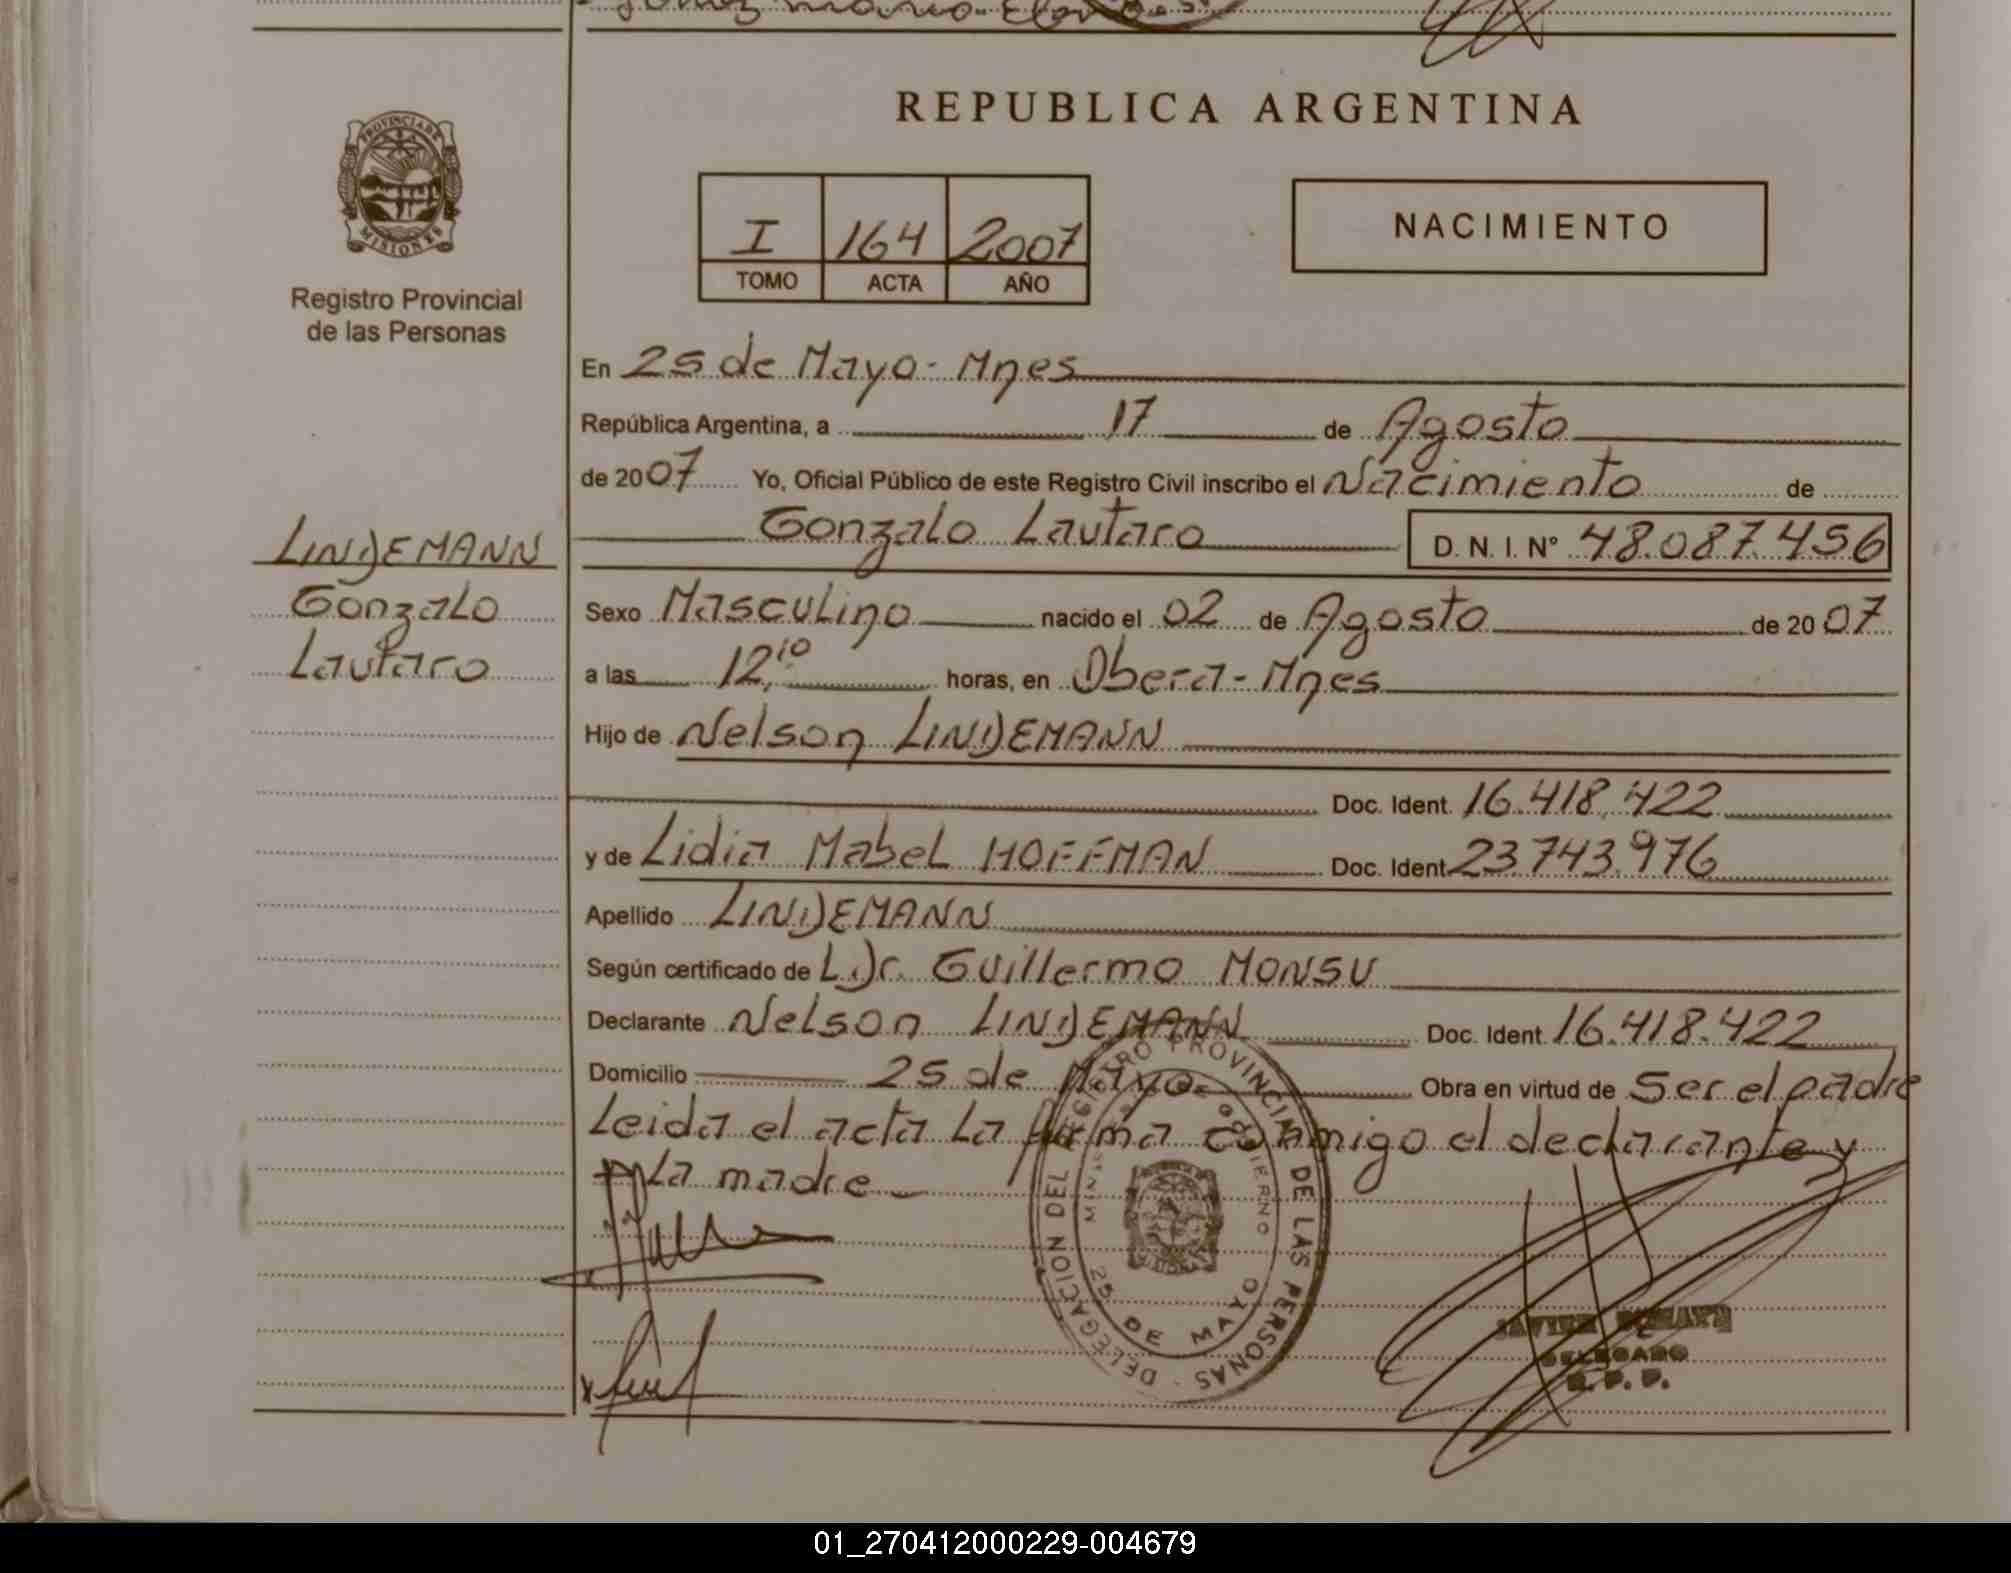 REPUBLICA ARGENTINA
PROVINCIA DE
MISIONES
Registro Provincial
de las Personas
I 164 2007
TOMO ACTA AÑO
NACIMIENTO
En 25 de Mayo - Mnes
República Argentina, a 17 de Agosto
de 2007 Yo, Oficial Público de este Registro Civil inscribo el Nacimiento de
Gonzalo Lautaro D. N. I. N° 48.087.456
LINDEMANN
Gonzalo
Lautaro
Sexo Masculino nacido el 02 de Agosto de 2007
a las 12,10 horas, en Obera - Mnes
Hijo de Nelson LINDEMANN
Doc. Ident. 16.418.422
y de Lidia Mabel HOFFMAN Doc. Ident. 23.743.976
Apellido LINDEMANN
Según certificado de L Dr. Guillermo MONSU
Declarante Nelson LINDEMANN Doc. Ident. 16.418.422
Domicilio 25 de Mayo Obra en virtud de Ser el padre
Leida el acta La firma conmigo el declarante y
La madre
DELEGACION DEL REGISTRO PROVINCIAL DE LAS PERSONAS
25 DE MAYO
JAVIER
DELEGADO
R. P. P.
01_270412000229-004679